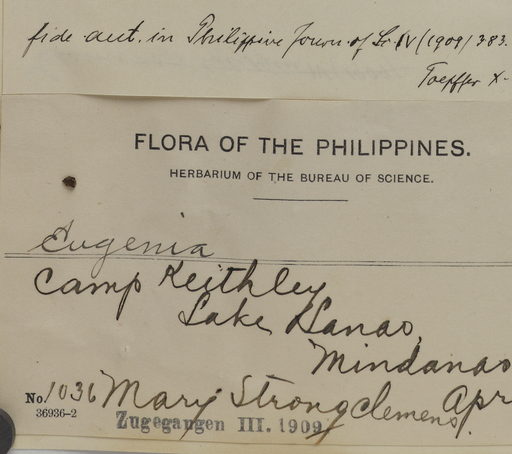 fide aut. in Philippine Journ. of Sc. IV (1909) 383.
Toepffer X-
FLORA OF THE PHILIPPINES.
HERBARIUM OF THE BUREAU OF SCIENCE.
Eugenia
Camp Keithley
Lake Lanao,
Mindanao
No. 1036 Mary Strong Clemens. Apr
36936-2
Zugegangen III. 1909